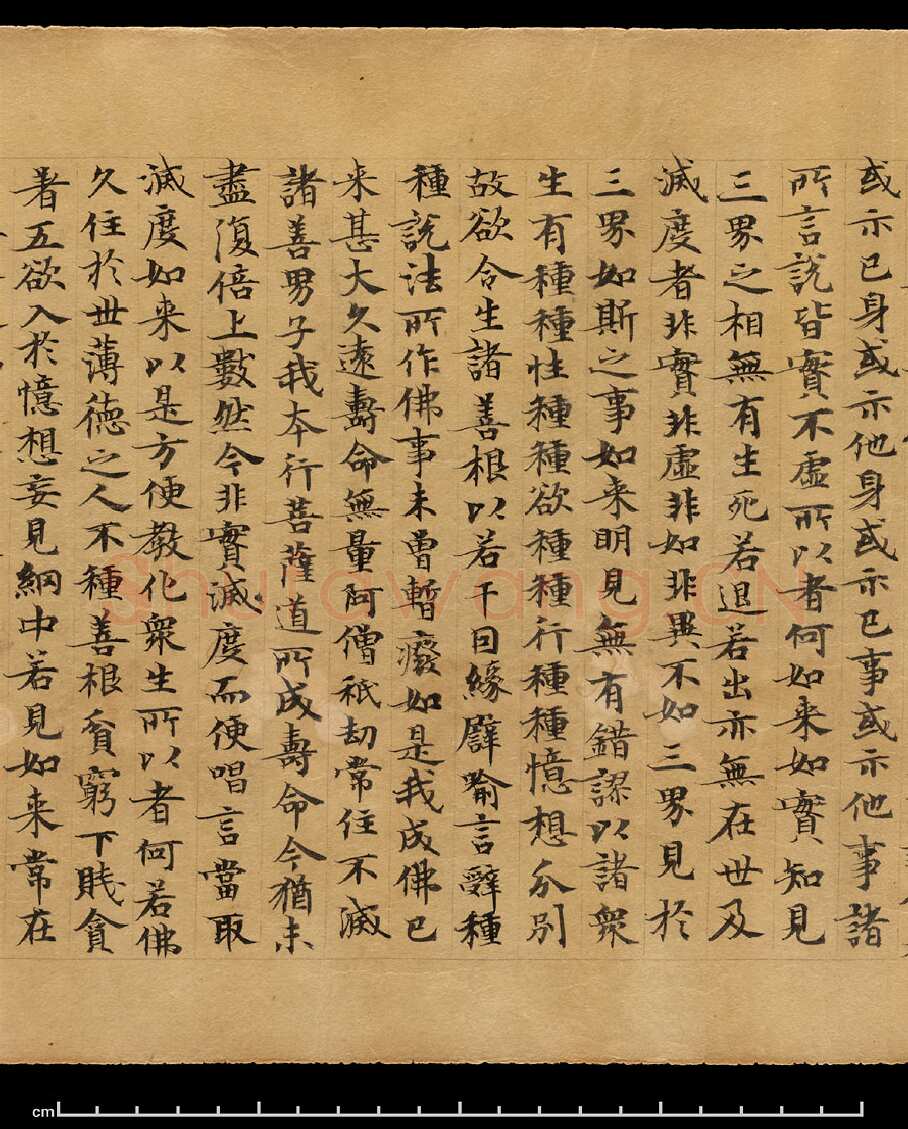 或示己身或示他身或示己事或示他事諸
所言說皆實不虛所以者何如来如實知見
三界之相無有生死若退若出亦無在世及
滅度者非實非虛非如非異不如三界見於
三界如斯之事如来明見無有錯謬以諸衆
生有種種性種種欲種種行種種憶想分別
故欲令生諸善根以若干因緣譬喻言辭種
種說法所作佛事未曾暫癈如是我成佛已
来甚大久遠壽命無量阿僧祇劫常住不滅
諸善男子我本行菩薩道所成壽命今猶未
盡復倍上數然今非實滅度而便唱言當取
滅度如来以是方便教化衆生所以者何若佛
久住於世薄德之人不種善根貧窮下賤貪
著五欲入於憶想妄見網中若見如来常在
Shufawang.CN
cm